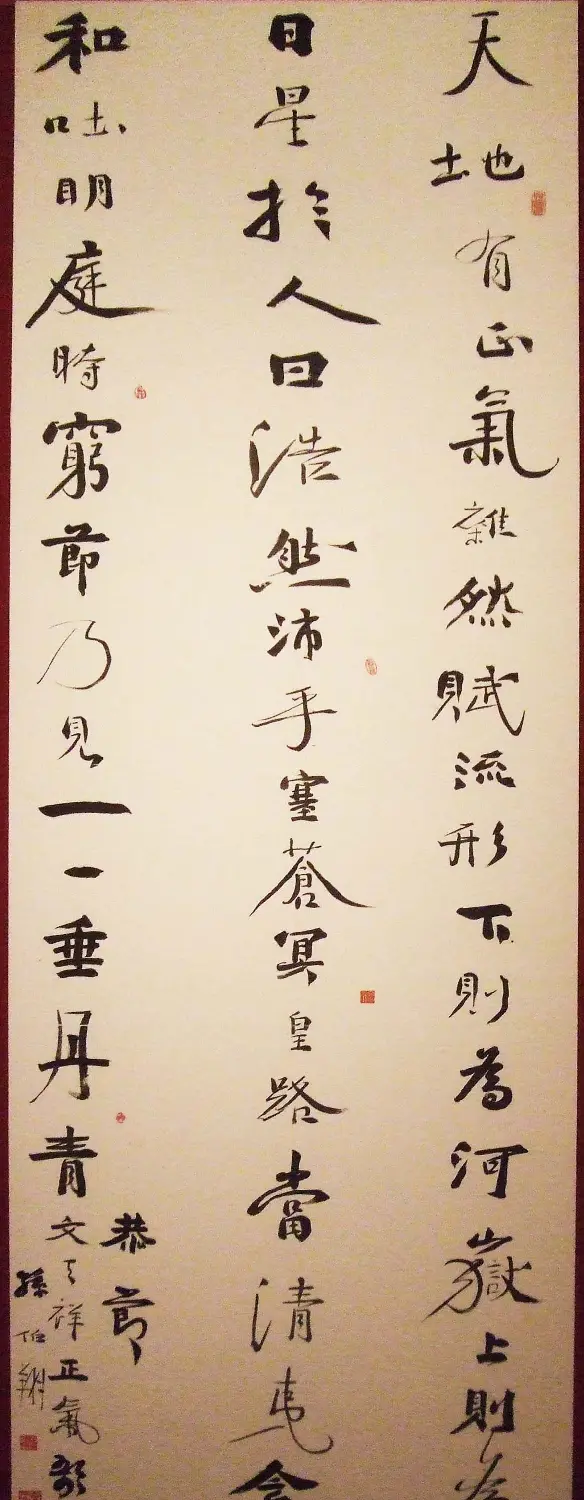 天地有正氣雜然賦流形下則為河嶽上則為
日星於人曰浩然沛乎塞蒼冥皇路當清夷含
和吐明庭時窮節乃見一一垂丹青
恭節
文天祥正氣歌
孫伯翔